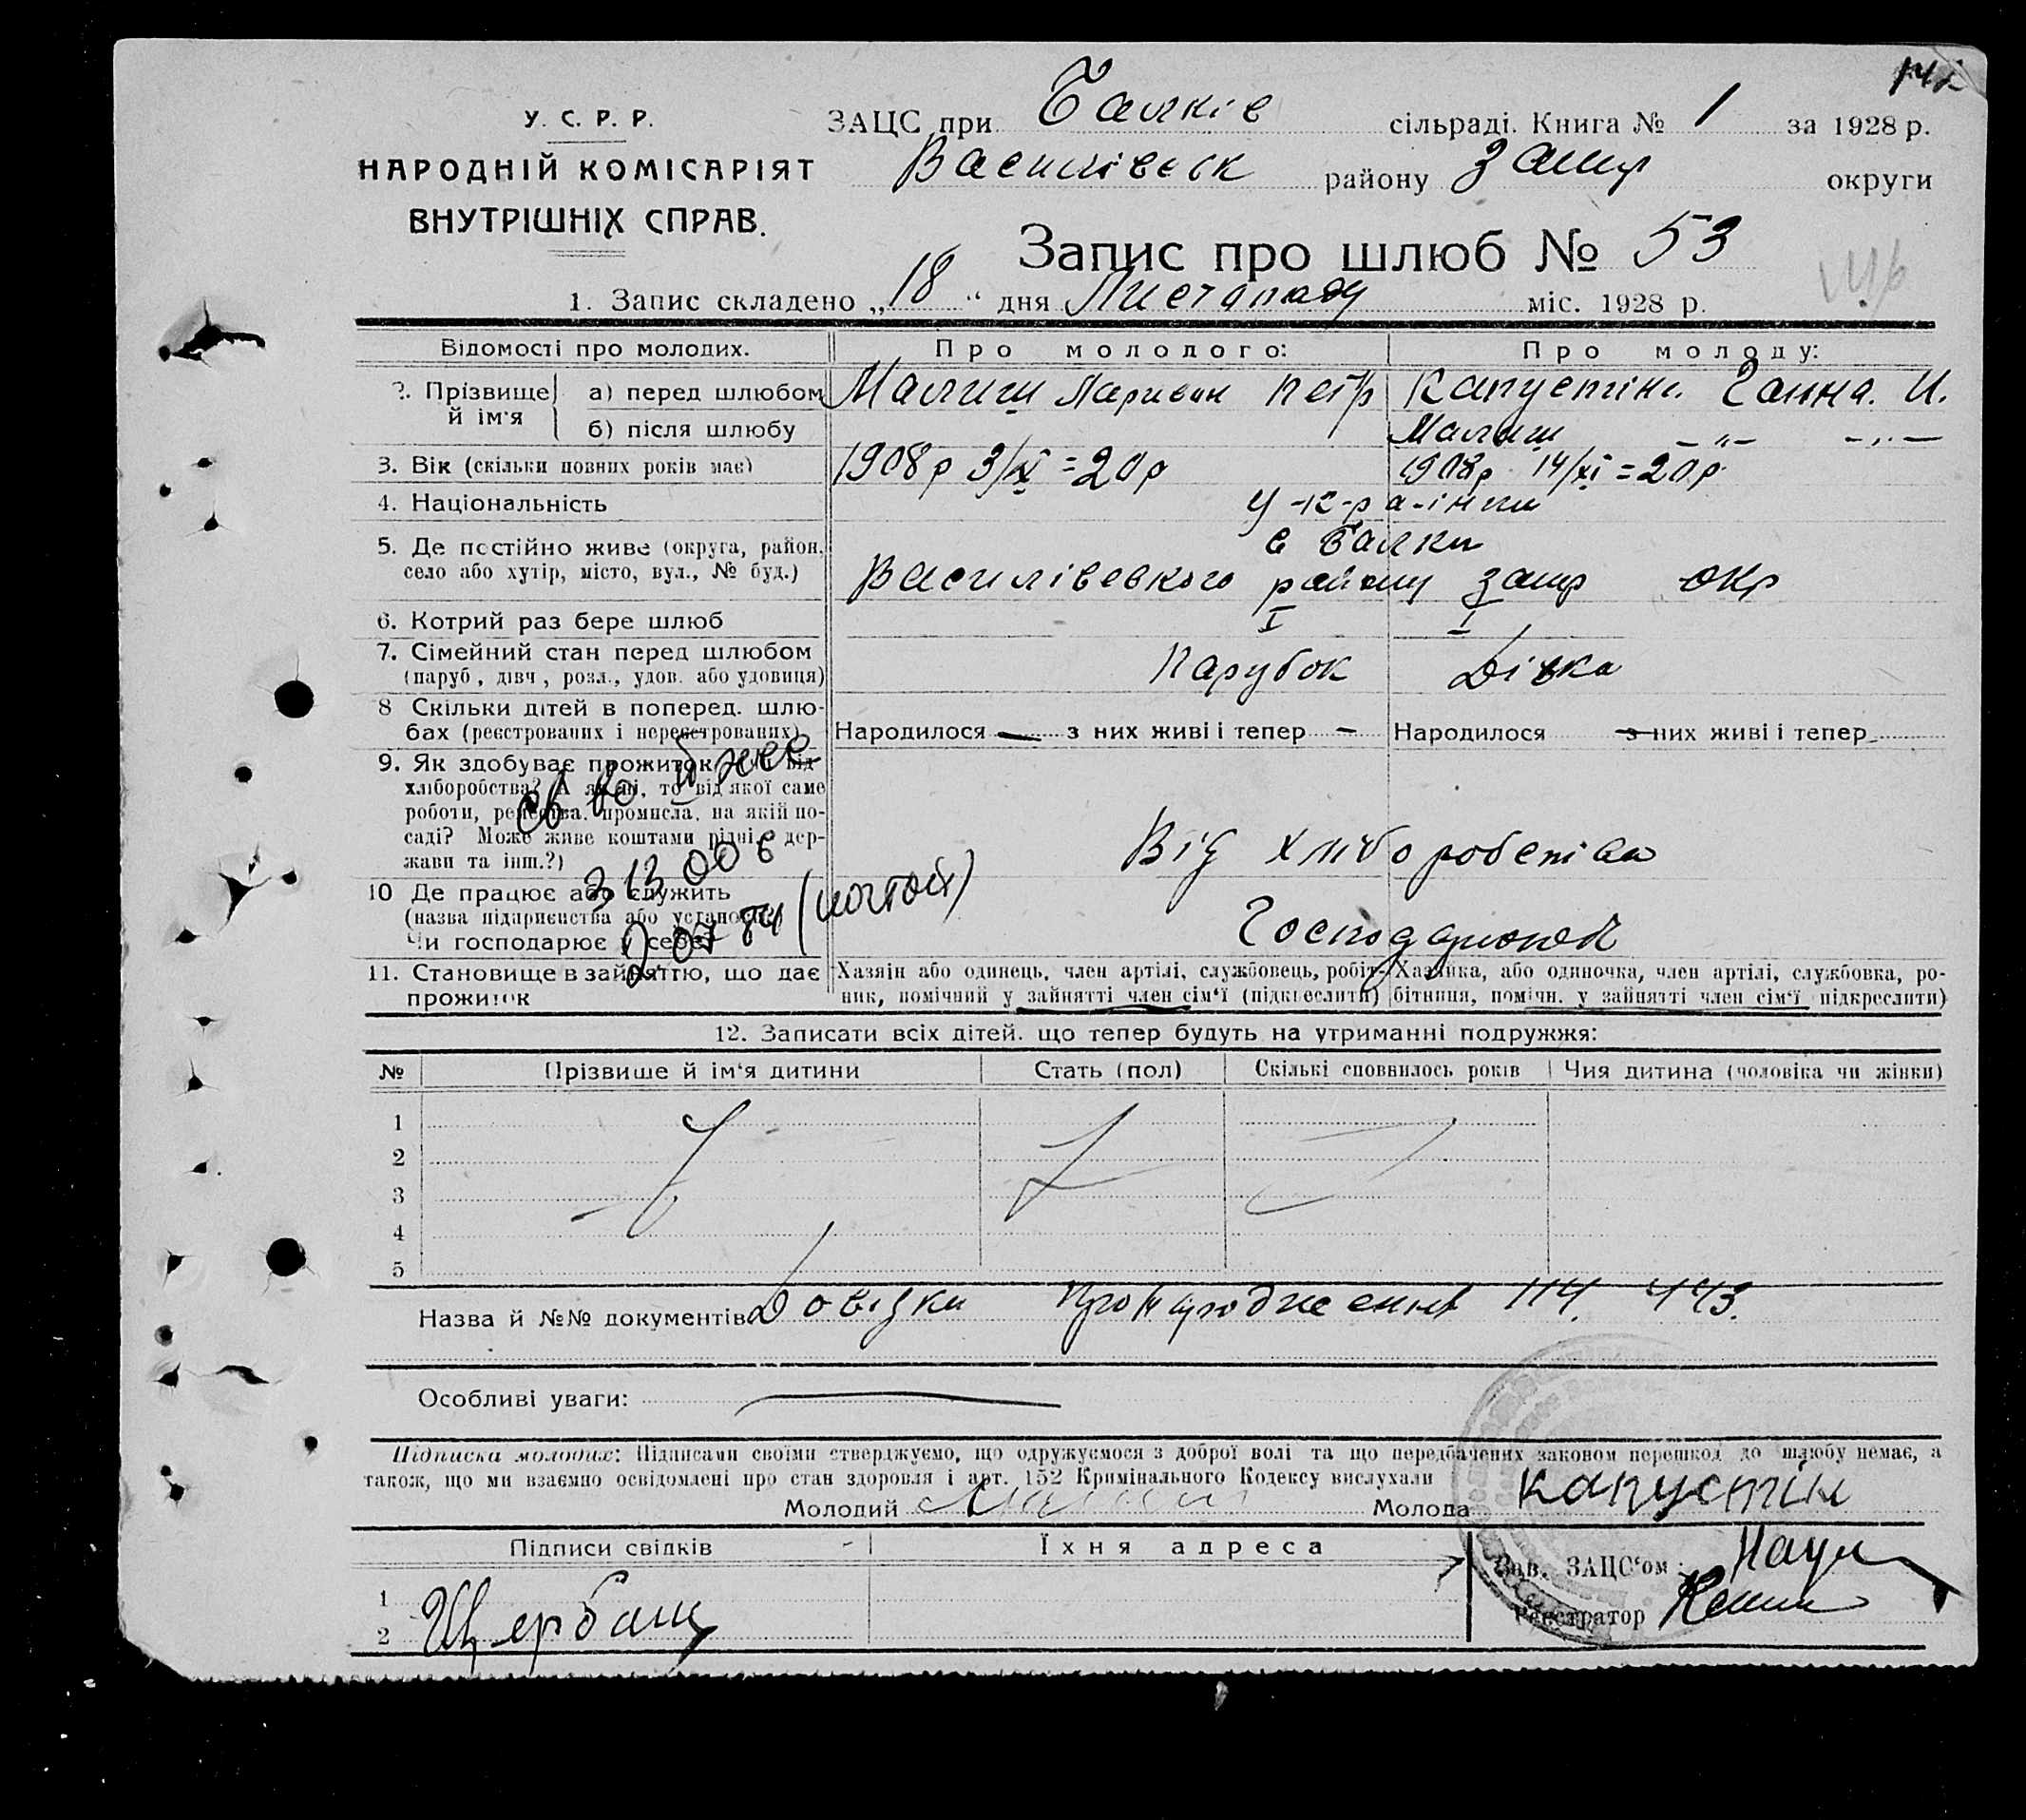 У. С. Р. Р.
НАРОДНІЙ КОМІСАРІЯТ
ВНУТРІШНІХ СПРАВ.
ЗАЦС при Балків сільраді. Книга № 1 за 1928 р.
Василівськ району Запор округи
Запис про шлюб № 53
1. Запис складено „18“ дня Листопаду міс. 1928 р.
Відомості про молодих. Про молодого: Про молоду:
2. Прізвище й ім'я а) перед шлюбом Малиш Ларивон Петр Капустіна Ганна. И.
б) після шлюбу Малиш —„— —„—
3. Вік (скільки повних років має) 1908 р 3/XI = 20 р 1908 р 14/XI = 20 р
4. Національність У-к-р-а-їнци
5. Де постійно живе (округа, район, село або хутір, місто, вул., № буд.) с Балки
Василівського району Запор окр
6. Котрий раз бере шлюб I I
7. Сімейний стан перед шлюбом Парубок Дівка
(паруб, дівч, розл., удов. або удовиця)
8 Скільки дітей в поперед. шлюбах (реєстрованих і нереєстрованих) Народилося — з них живі і тепер — Народилося — з них живі і тепер
9. Як здобуває прожиток (чи від
хліборобства? А як ні, то від якої саме
роботи, ремества, промисла, на якій по-
саді? Може живе коштами рідні, дер-
жави та інш.?) Від хліборобства
св во
313006
20784 (
10 Де працює або служить
(назва підприємства або установи)
Чи господарює у себе? Господарюют
11. Становище в зайняттю, що дає прожиток
Хазяін або одинець, член артілі, службовець, робіт-
ник, помічний у зайнятті член сім'ї (підкреслити)
Хазяйка, або одиночка, член артілі, службовка, ро-
бітниця, помічн. у зайнятті член сім'ї підкреслити)
12. Записати всіх дітей, що тепер будуть на утриманні подружжя:
№ Прізвище й ім'я дитини Стать (пол) Скількі сповнилось років Чия дитина (чоловіка чи жінки)
1
2
3
4
5
Назва й №№ документів Довідки про народження 114. 443.
Особливі уваги:
Підписка молодих: Підписами своїми стверджуємо, що одружуємося з доброї волі та що передбачених законом перешкод до шлюбу немає, а
також, що ми взаємно освідомлені про стан здоровля і арт. 152 Кримінального Кодексу вислухали
Молодий Малиш Молода Капустін
Підписи свідків Їхня адреса
Зав. ЗАЦС'ом:
1
2 Щербаць
Реєстратор